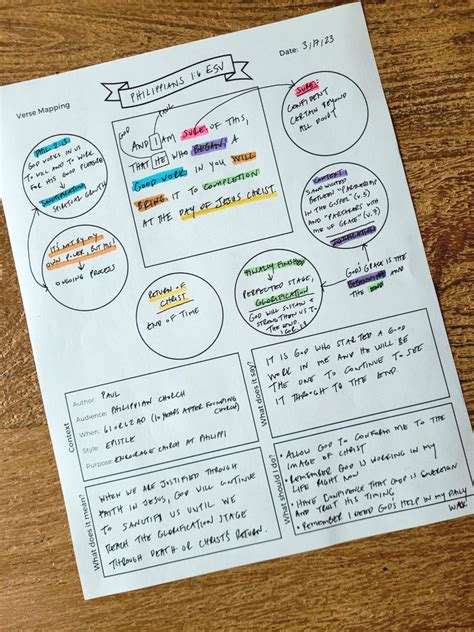 Verse Mapping
Date: 3/17/23
PHILIPPIANS 1:6 ESV
GOD
PAUL
AND I AM SURE OF THIS,
THAT HE WHO BEGAN A
GOOD WORK IN YOU WILL
BRING IT TO COMPLETION
AT THE DAY OF JESUS CHRIST.
SURE:
CONFIDENT
CERTAIN BEYOND
ALL DOUBT
PHIL 2:13
GOD WORKS IN US
TO WILL AND TO WORK
FOR HIS GOOD PLEASURE
SANCTIFICATION
SPIRITUAL GROWTH
IT'S NOT BY MY
OWN POWER, BUT HIS!
ONGOING PROCESS
RETURN OF
CHRIST
END OF TIME
FINALLY FINISHED
PERFECTED STAGE,
GLORIFICATION
GOD WILL SUSTAIN &
STRENGTHEN US TO
THE END.
1 COR 1:8
CONTEXT:
SANDWICHED
BETWEEN "PARTNERS
IN THE GOSPEL" (V.5)
AND "PARTAKERS WITH
ME OF GRACE" (V.7)
GOD'S GRACE IS THE
BEGINNING AND
THE END
Context
Author: PAUL
Audience: PHILIPPIAN CHURCH
When: 61 OR 62 AD (10 YEARS AFTER FOUNDING
CHURCH)
Style: EPISTLE
Purpose: ENCOURAGE CHURCH AT PHILIPPI
What does it say?
IT IS GOD WHO STARTED A GOOD
WORK IN ME AND HE WILL BE
THE ONE TO CONTINUE TO SEE
IT THROUGH TO THE END.
What does it mean?
WHEN WE ARE JUSTIFIED THROUGH
FAITH IN JESUS, GOD WILL CONTINUE
TO SANCTIFY US UNTIL WE
REACH THE GLORIFICATION STAGE
THROUGH DEATH OR CHRIST'S RETURN.
What should I do?
• ALLOW GOD TO CONFORM ME TO THE
IMAGE OF CHRIST
• REMEMBER GOD IS WORKING IN MY
LIFE RIGHT NOW
• HAVE CONFIDENCE THAT GOD IS SOVEREIGN
AND TRUST HIS TIMING.
• REMEMBER I NEED GOD'S HELP IN MY DAILY
WALK